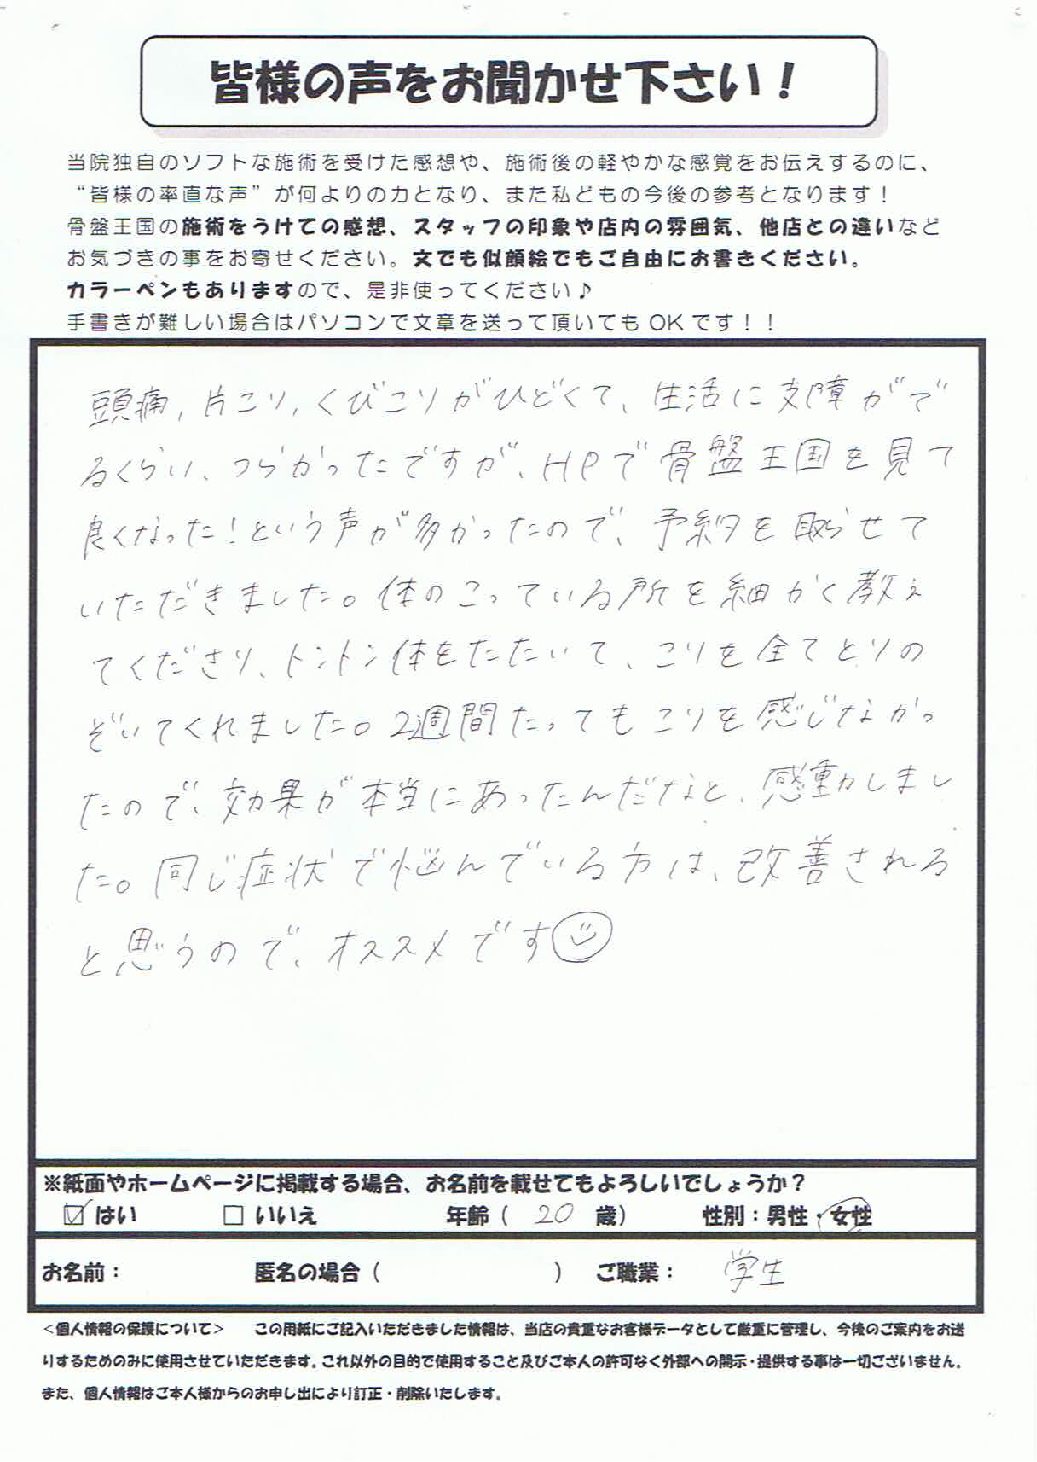 皆様の声をお聞かせ下さい！
当院独自のソフトな施術を受けた感想や、施術後の軽やかな感覚をお伝えするのに、
“皆様の率直な声”が何よりの力となり、また私どもの今後の参考となります！
骨盤王国の施術をうけての感想、スタッフの印象や店内の雰囲気、他店との違いなど
お気づきの事をお寄せください。文でも似顔絵でもご自由にお書きください。
カラーペンもありますので、是非使ってください♪
手書きが難しい場合はパソコンで文章を送って頂いてもOKです！！
頭痛, 片こり, くびこりがひどくて、生活に支障がで
るくらい、つらかったですが、HPで骨盤王国を見て
良くなった！という声が多かったので、予約を取らせて
いただきました。体のこっている所を細かく教え
てくださり、トントン体をたたいて、こりを全てとりの
ぞいてくれました。2週間たってもこりを感じなかっ
たので、効果が本当にあったんだなと、感動しまし
た。同じ症状で悩んでいる方は、改善される
と思うので、オススメです☺
※紙面やホームページに掲載する場合、お名前を載せてもよろしいでしょうか？
☑ はい　□ いいえ　年齢（ 20 歳）　性別：男性・女性
お名前：　匿名の場合（　　）　ご職業： 学生
＜個人情報の保護について＞　この用紙にご記入いただきました情報は、当店の貴重なお客様データとして厳重に管理し、今後のご案内をお送
りするためのみに使用させていただきます。これ以外の目的で使用すること及びご本人の許可なく外部への開示・提供する事は一切ございません。
また、個人情報はご本人様からのお申し出により訂正・削除いたします。